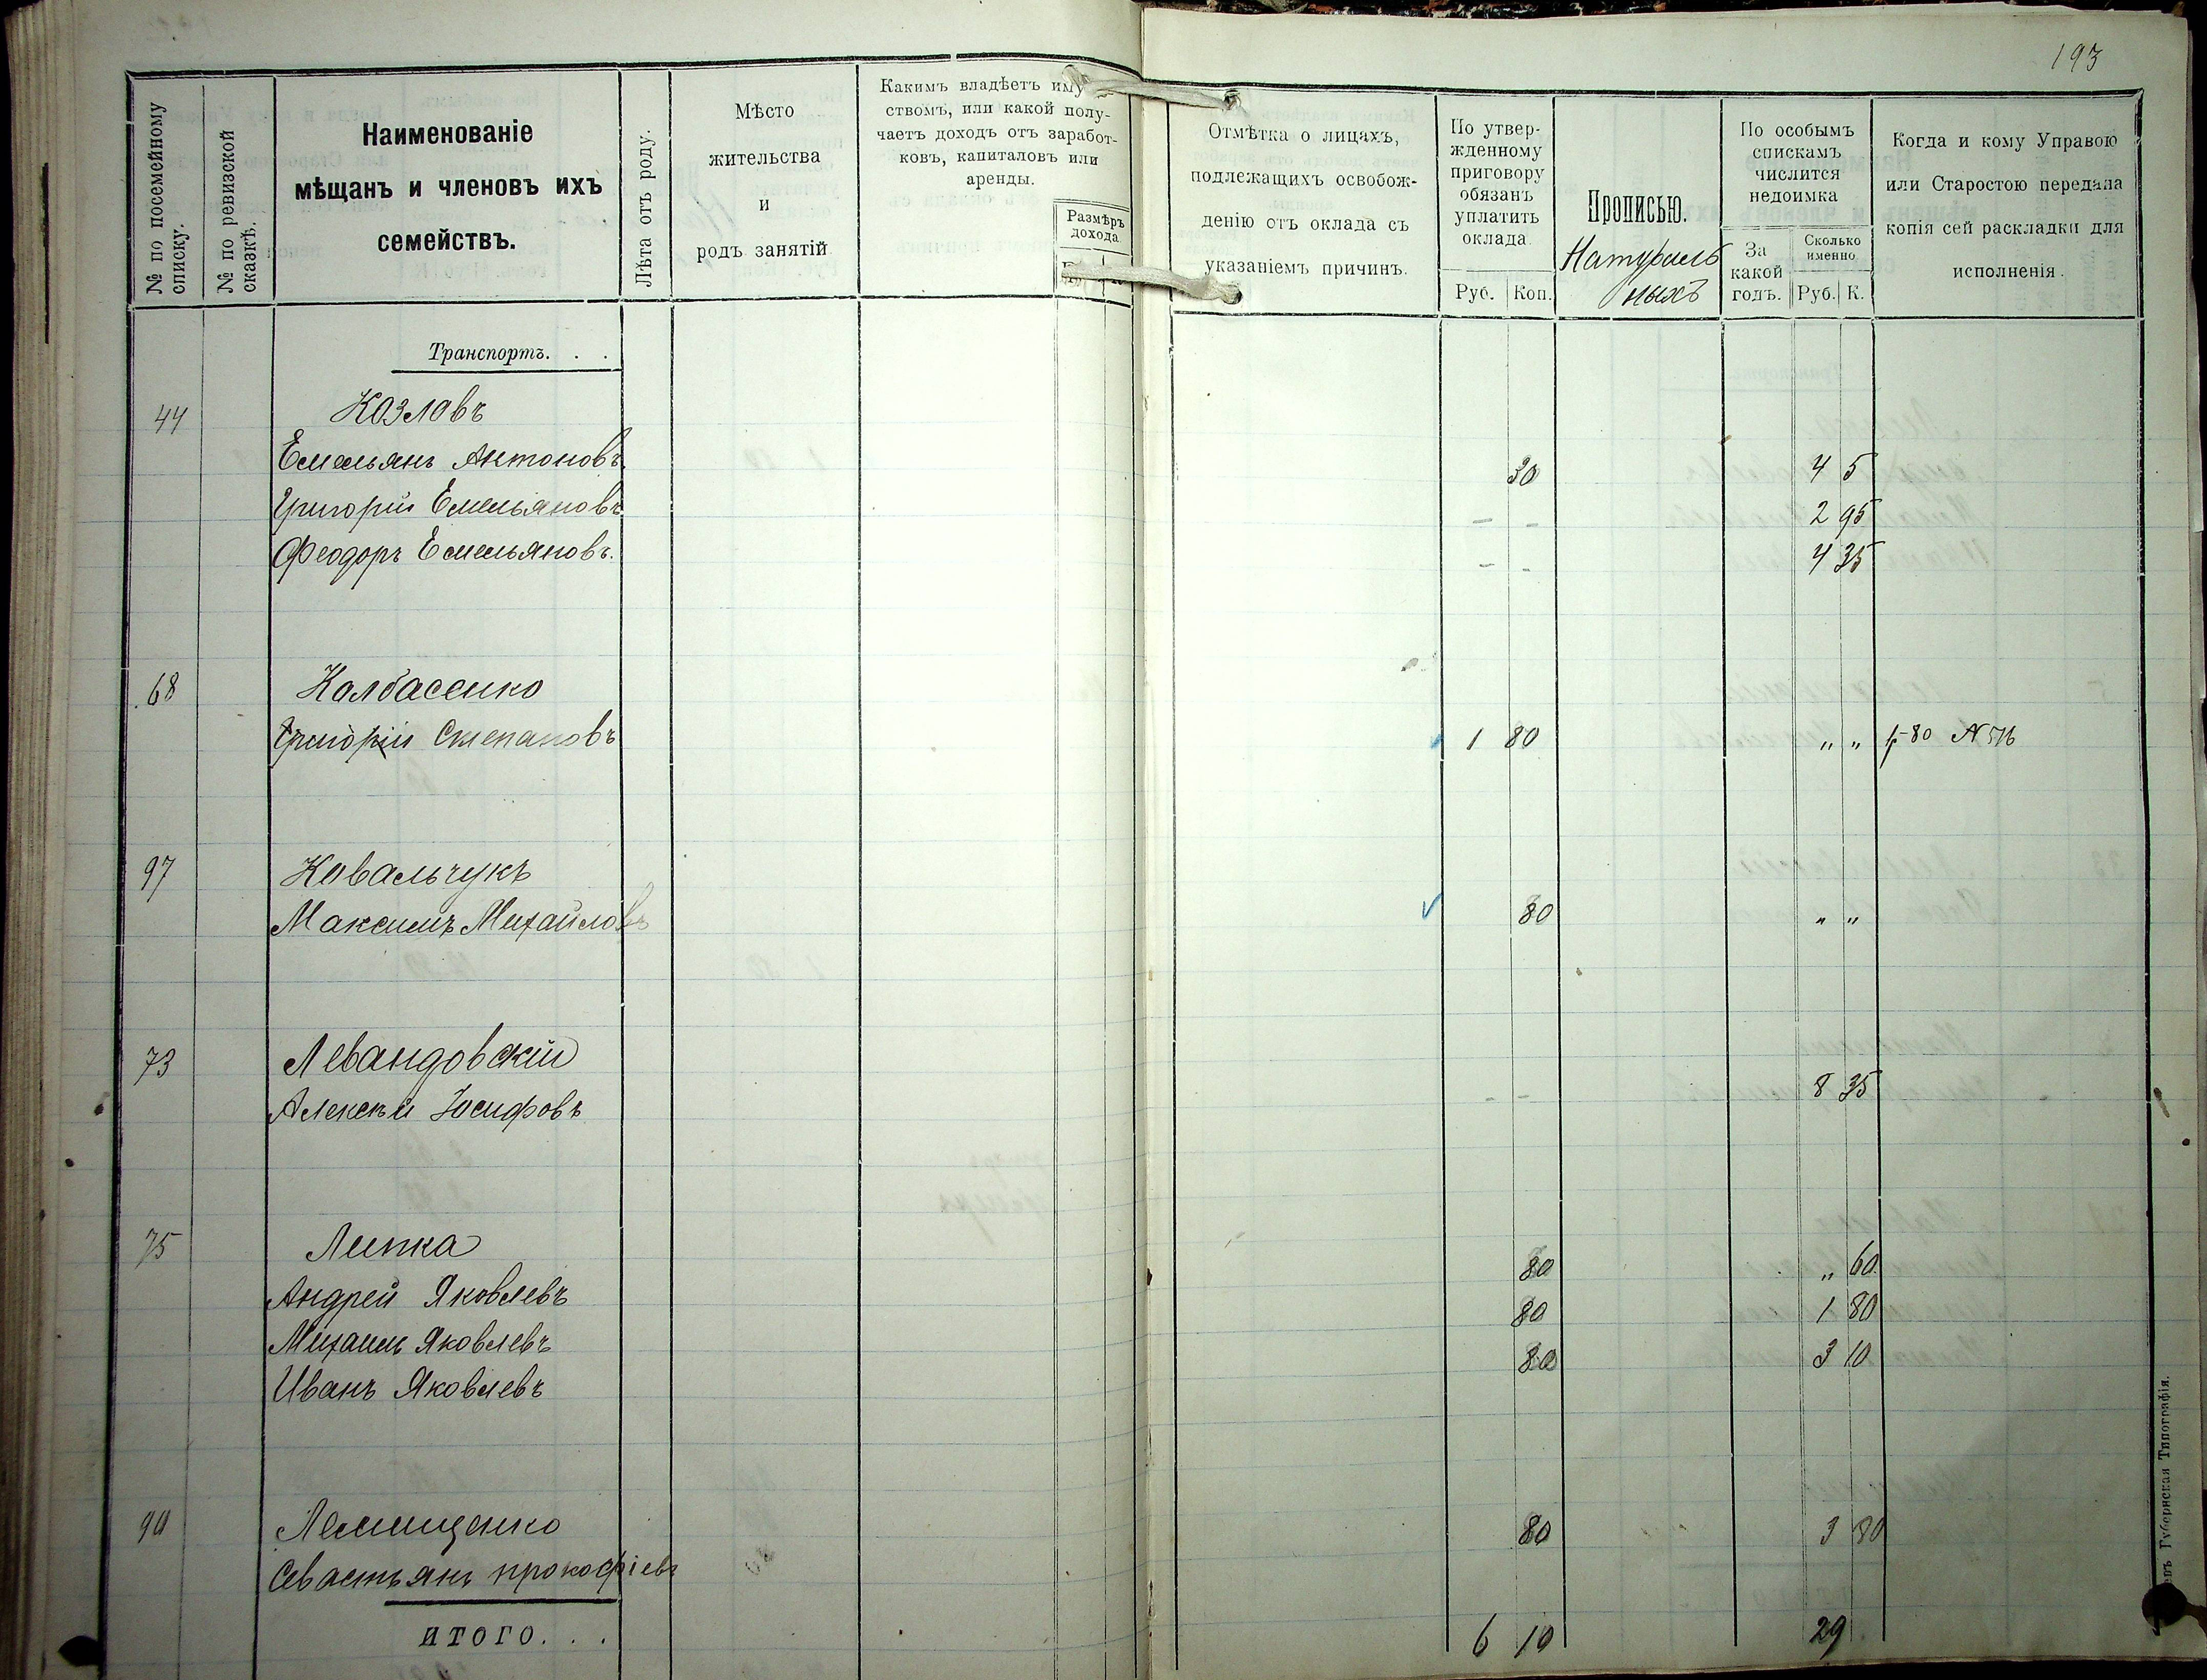 193
№ по посемейному
списку.
№ по ревизской
сказкѣ.
Наименованіе
мѣщанъ и членовъ ихъ
семействъ.
Лѣта отъ роду.
Мѣсто
жительства
и
родъ занятій
Какимъ владѣетъ иму
ствомъ, или какой полу-
чаетъ доходъ отъ заработ-
ковъ, капиталовъ или
аренды.
Размѣръ
дохода
Отмѣтка о лицахъ,
подлежащихъ освобож-
денію отъ оклада съ
указаніемъ причинъ.
По утвер-
жденному
приговору
обязанъ
уплатить
оклада
Руб. Коп.
Прописью.
Натураль
ныхъ
По особымъ
спискамъ
числится
недоимка
За
какой
годъ.
Сколько
именно
Руб. К.
Когда и кому Управою
или Старостою передана
копія сей раскладки для
исполненія.
Транспортъ. . .
44 Козловъ
Емельянъ Антоновъ 30 4 5
Григорій Емельяновъ. – – 2 95
Феодоръ Емельяновъ. – – 4 35
68 Колбасенко
Григорій Степановъ 1 80 „ „ 1-80 № 516
97 Ковальчукъ
Максимъ Михайловъ 80 „ „
73 Левандовскій
Алексѣй Іосифовъ – – 8 35
75 Липка 80 „ 60
Андрей Яковлевъ 80 1 80
Михаилъ Яковлевъ 80 3 10
Иванъ Яковлевъ
90 Лемищенко 80 3 80
Севастьянъ прокофіевъ
итого. . . 6 10 29
евъ Губернская Типографія.